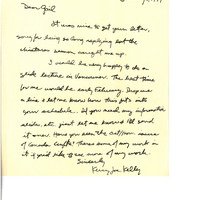 Dear Gail
It was nice to get your letter,
sorry for being so long replying but the
Christmas season caught me up.
I would be very happy to do a
slide lecture in Vancouver. The best time
for me would be early February. Drop me
a line & let me know how this fits into
your schedule. If you need any information
slides etc. just let me know & I'll send
it soon. Have you seen the issue
of Canada Crafts? There's some of my work in
it if you'd like to see more of my work.
Sincerely
Kelly